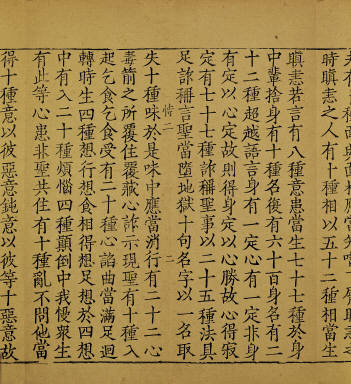 時瞋恚之人有十種相以五十二種相當生
瞋恚若言有八種意患當生七十七種於身
中輩捨身有十種名後有六十百身名有二
十二種超越語言身有一定心有一定非身
有定以心定故則得身定以心勝故心得寂
定有七十七種詐稱聖事以二十五種法具
足詐稱言聖當墮地獄十句名字以一名取
失十種味於是味中應當消行有二十二心
毒箭之所覆住覆藏心詐示現聖有十種入
起乞食乞食受有二十種心諂曲當滿足迴
轉時生四種想行想食相得想足想於四想
中有入二十種煩惱四種顛倒中我慢眾生
有此等心患非聖共住有十種亂不問他當
得十種意以彼惡意鈍意以彼等十惡意故